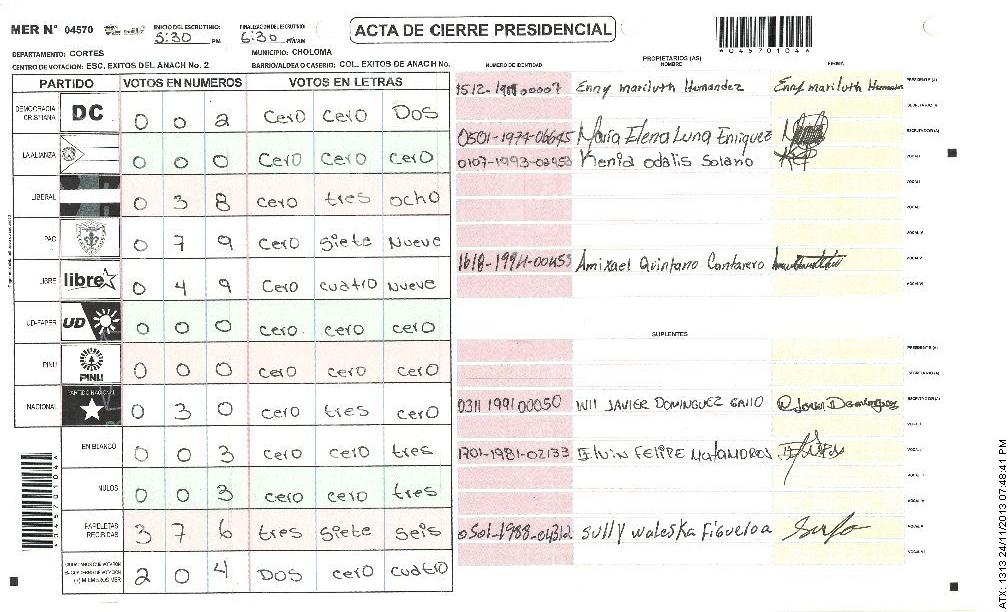 MER N° 04570
INICIO DEL ESCRUTINIO: 5:30 PM
FINALIZACION DEL ESCRUTINIO: 6:30
ACTA DE CIERRE PRESIDENCIAL
DEPARTAMENTO: CORTES
MUNICIPIO: CHOLOMA
CENTRO DE VOTACION: ESC. EXITOS DEL ANACH No. 2
BARRIO/ALDEA O CASERIO: COL. EXITOS DE ANACH No.
PARTIDO VOTOS EN NUMEROS VOTOS EN LETRAS
DEMOCRACIA CRISTIANA DC 0 0 2 Cero Cero Dos
LA ALIANZA 0 0 0 Cero Cero Cero
LIBERAL 0 3 8 Cero tres ocho
PAC 0 7 9 Cero Siete Nueve
LIBRE libre 0 4 9 Cero cuatro Nueve
UD-FAPER UD 0 0 0 cero cero cero
PINU PINU 0 0 0 cero cero cero
NACIONAL PARTIDO NACIONAL 0 3 0 cero tres cero
EN BLANCO 0 0 3 cero cero tres
NULOS 0 0 3 cero cero tres
PAPELETAS RECIBIDAS 3 7 6 tres siete seis
2 0 4 DOS cero cuatro
0 4 5 7 0 1 0 4
NUMERO DE IDENTIDAD
PROPIETARIOS (AS)
NOMBRE
FIRMA
Enny mariluth Hernandez Enny mariluth Hernandez PRESIDENTE (A)
SECRETARIO (A)
0501-1974-06645 Maria Elena Luna Enriquez ESCRUTADOR (A)
0107-1993-02953 Kenia odalis Solano VOCAL I
1618-1994-00453 Amixael Quintano Cantarero VOCAL V
SUPLENTES
PRESIDENTE (A)
SECRETARIO (A)
0311 1991 00050 Will JAVIER DOMINGUEZ GAIIO ESCRUTADOR (A)
1701-1981-02133 Elvin FELIPE MATAMOROS
0501-1988-04312 Sully waleska Figueroa
ATX: 1313 24/11/2013 07:48:41 PM